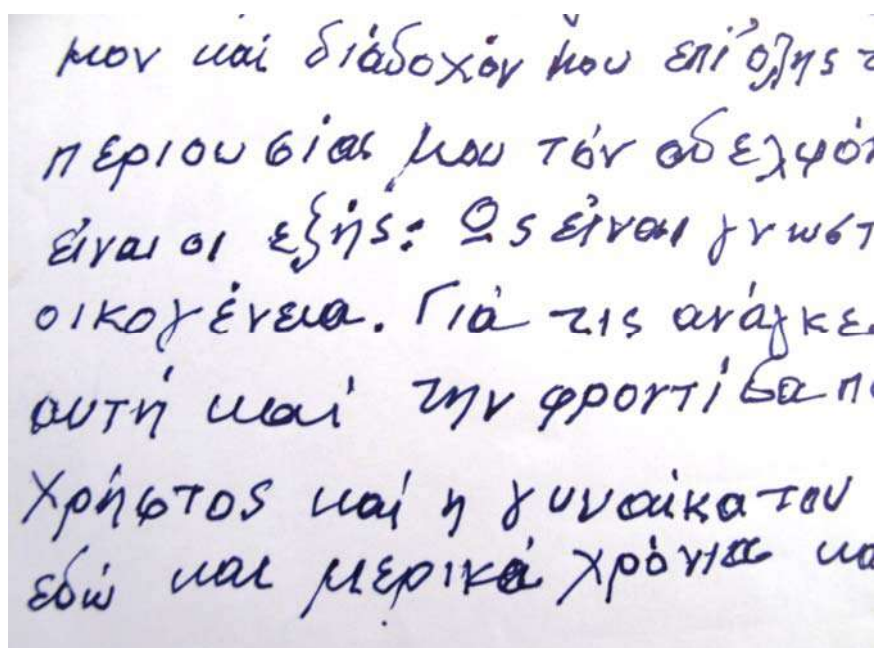 μον καί διάδοχόν μου επί όλης τ
περιουσίας μου τόν αδελφό
είναι οι εξής: Ως είναι γνωστ
οικογένεια. Γιά τις ανάγκε
αυτή καί την φροντίσα π
Χρήστος καί η γυναίκα του
εδώ και μερικά χρόνια κα